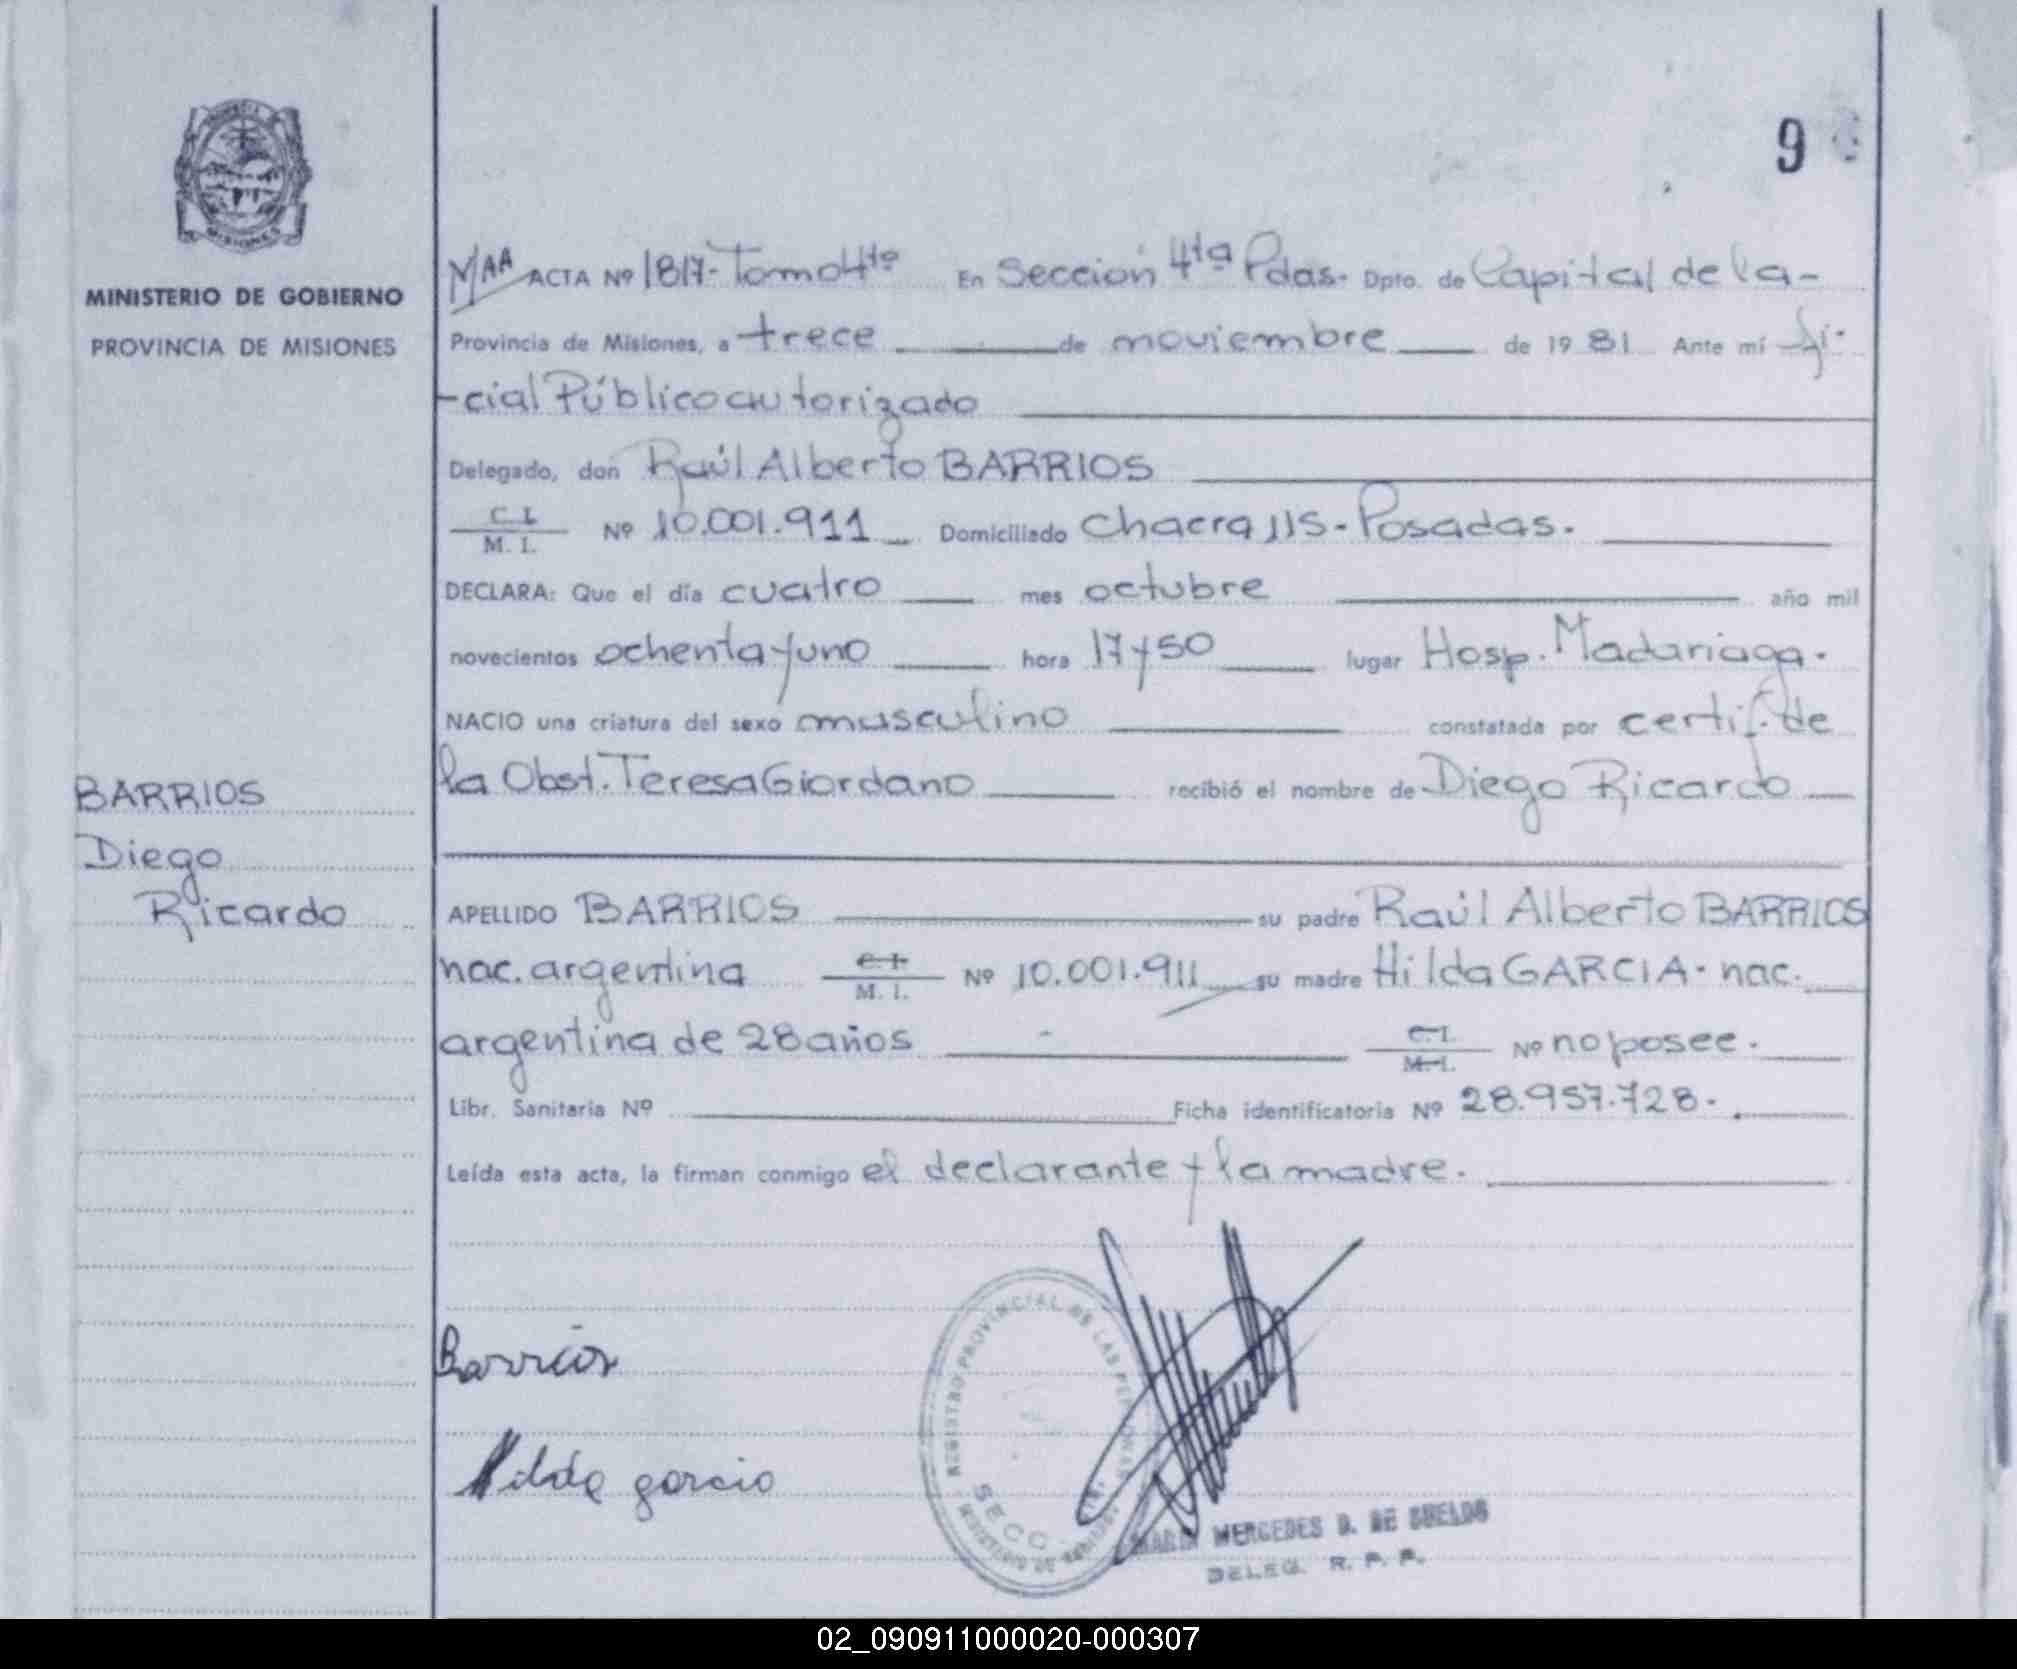 9
MAA ACTA Nº 1817-Tomo 4to En Sección 4ta Pdas. Dpto. de Capital de la-
MINISTERIO DE GOBIERNO
PROVINCIA DE MISIONES
Provincia de Misiones, a trece de moviembre de 1981 Ante mí
-cial Público autorizado
Delegado, don Raúl Alberto BARRIOS
C.I. M. I. Nº 10.001.911 Domiciliado Chacra 115-Posadas.
DECLARA: Que el día cuatro mes octubre año mil
novecientos ochenta y uno hora 17 y 50 lugar Hosp. Madariaga.
NACIO una criatura del sexo masculino constatada por certif. de
la Obst. Teresa Giordano recibió el nombre de Diego Ricardo
BARRIOS
Diego
Ricardo
APELLIDO BARRIOS su padre Raúl Alberto BARRIOS
nac. argentina C.I. M. I. Nº 10.001.911 su madre Hilda GARCIA. nac.
argentina de 28 años C.I. M.I. Nº no posee.
Libr. Sanitaria Nº Ficha identificatoria Nº 28.957.728.
Leída esta acta, la firman conmigo el declarante y la madre.
Barrios
Hilda garcia
REGISTRO PROVINCIAL DE LAS PERSONAS
MINISTERIO DE
SECC
MARIA MERCEDES D. DE SUELDO
DELEG. R. P. P.
02_090911000020-000307